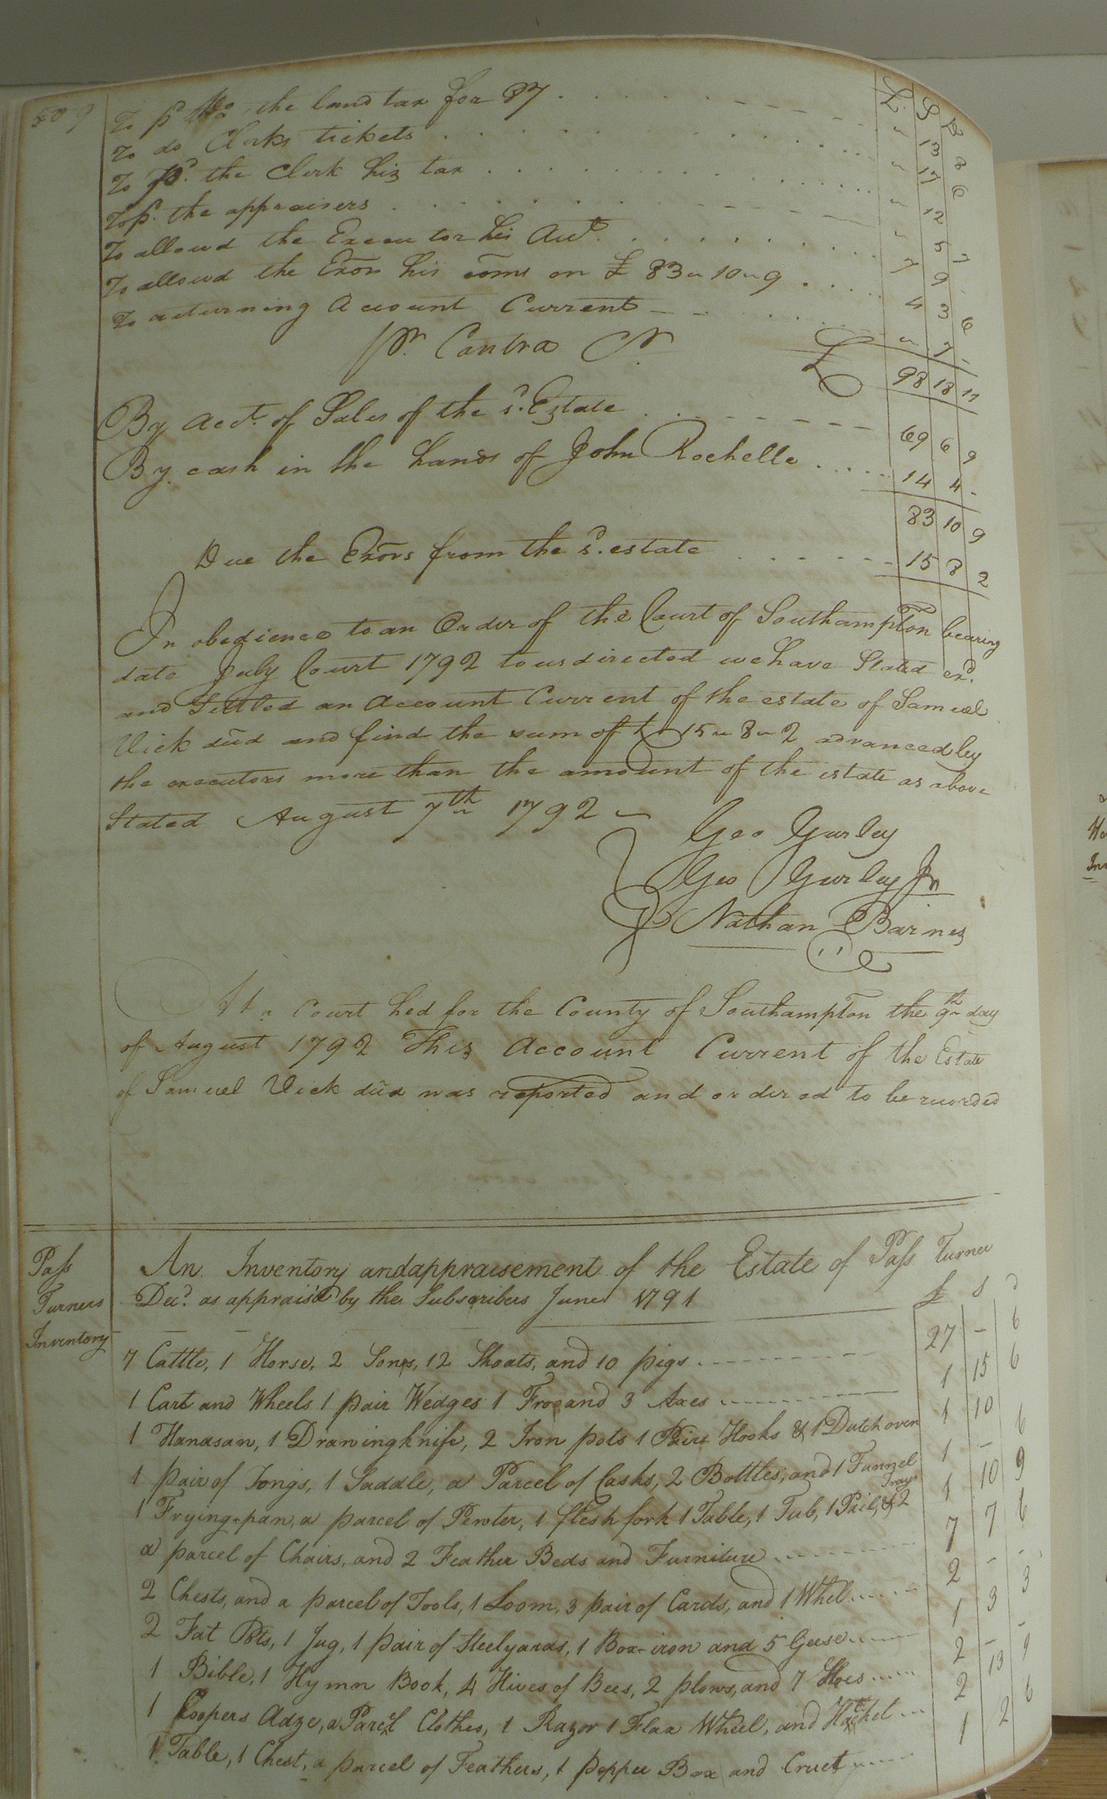 509
£ S D
To pd Do the land tax for 87 " 13 8
To do Clerks tickets " 17 6
To pd. the Clerk his tax " 12
To pd. the appraisers " 5
To allowd the Executor his Act. 7 9 7
To allowd the Exors his coms on £ 83 " 10 " 9 4 3 6
To returning Account Current " 7 -
Pr. Contra Cr. £ 98 18 11
By Acct. of Sales of the sd. Estate 69 6 9
By cash in the hands of John Rochelle 14 4 -
83 10 9
Due the Exors from the sd. estate 15 8 2
In obedience to an Order of the Court of Southampton bearing
date July Court 1792 to us directed we have Stated exd.
and Settled an Account Current of the estate of Samuel
Vick decd and find the sum of £ 15 " 8 " 2 advanced by
the executors more than the amount of the estate as above
Stated August 7th 1792
Geo Gurley
Geo Gurley Jr
Nathan Barnes
At a Court hed for the County of Southampton the 9th day
of August 1792 This Account Current of the Estate
of Samuel Vick decd was reported and ordered to be recorded
Pass
Turners
Inventory
An Inventory and appraisement of the Estate of Pass Turner
Decd. as appraisd by the Subscribers June 1791
£ s d
7 Cattle, 1 Horse, 2 Sows, 12 Shoats, and 10 pigs 27 - 6
1 Cart and Wheels 1 pair Wedges 1 Froe and 3 Axes 1 15 6
1 Handsaw, 1 Drawingknife, 2 Iron pots 1 Pair Hooks & 1 Dutch oven 1 10
1 pair of Tongs, 1 Saddle, a Parcel of Casks, 2 Bottles, and 1 Funnel 1 - 6
1 Frying-pan, a parcel of Pewter, 1 flesh fork 1 Table, 1 Tub, 1 Pail, & 2 Trays 1 10 9
a parcel of Chairs, and 2 Feather Beds and Furniture 7 7 6
2 Chests, and a parcel of Tools, 1 Loom, 3 pair of Cards, and 1 Whel 2 - -
2 Fat Pots, 1 Jug, 1 pair of Steelyards, 1 Box-iron and 5 Geese 1 3 3
1 Bible, 1 Hymn Book, 4 Hives of Bees, 2 plows, and 7 Hoes 2 - -
1 Coopers Adze, a Parcel Clothes, 1 Razor 1 Flax Wheel, and Hackel 2 13 9
1 Table, 1 Chest, a parcel of Feathers, 1 pepper Box and Cruet 1 2 6